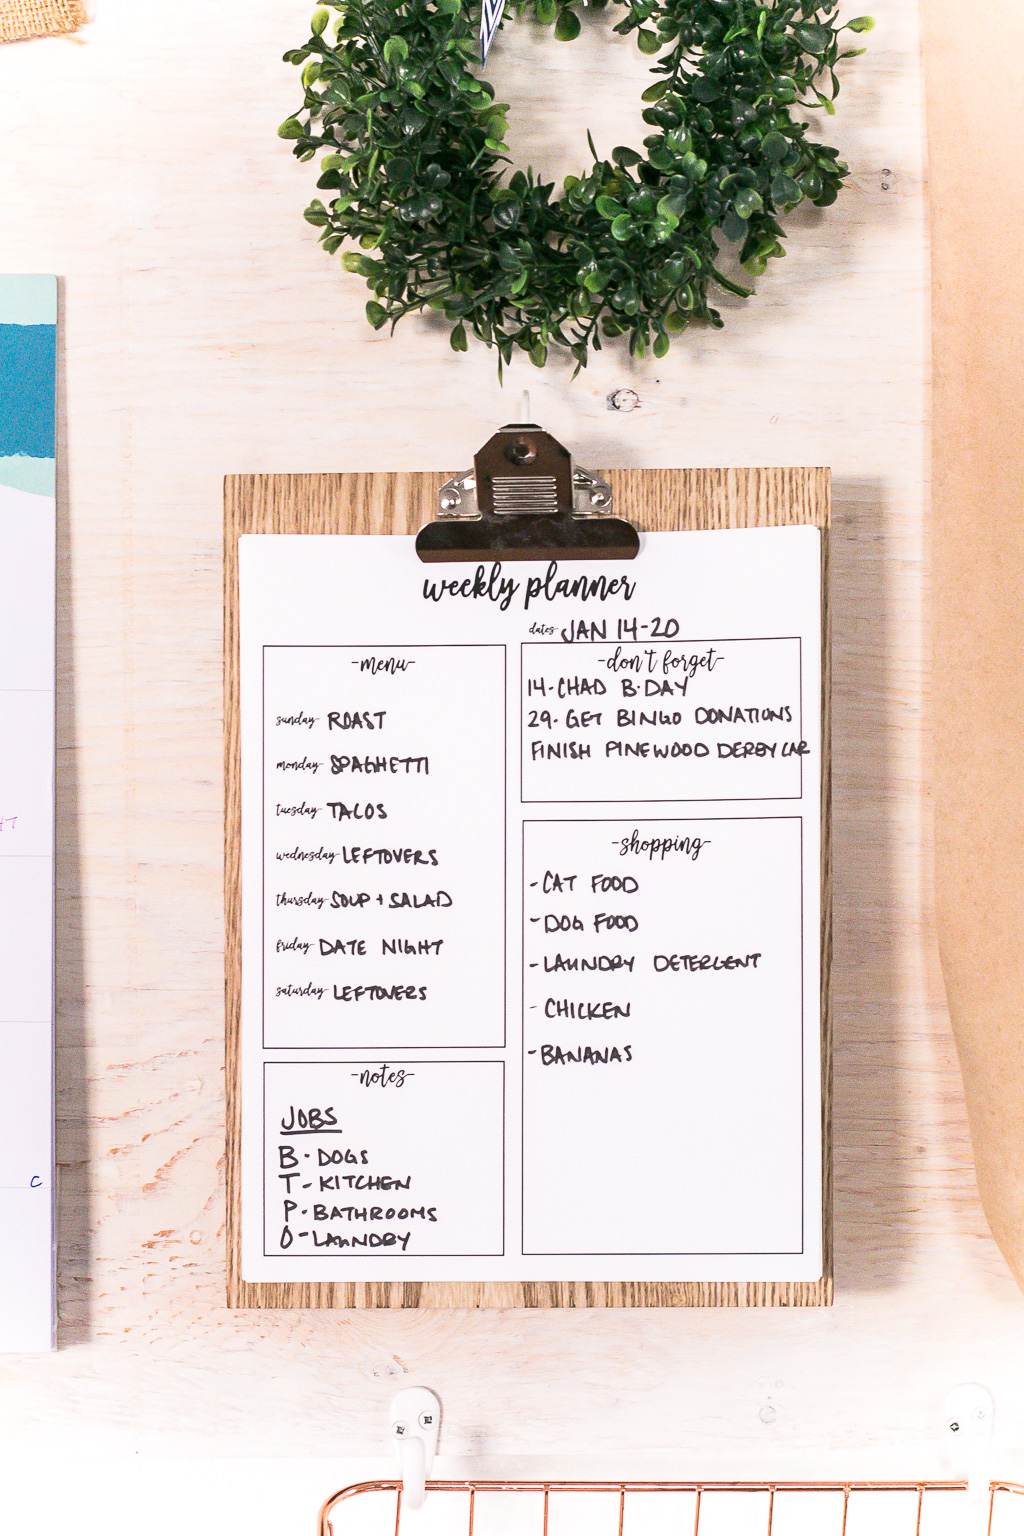 weekly planner
dates- JAN 14-20
-menu-
sunday- ROAST
monday- SPAGHETTI
tuesday- TACOS
wednesday- LEFTOVERS
thursday- SOUP + SALAD
friday- DATE NIGHT
saturday- LEFTOVERS
-notes-
JOBS
B- DOGS
T- KITCHEN
P- BATHROOMS
O- LAUNDRY
-don't forget-
14- CHAD B-DAY
29- GET BINGO DONATIONS
FINISH PINEWOOD DERBY CAR
-shopping-
- CAT FOOD
- DOG FOOD
- LAUNDRY DETERGENT
- CHICKEN
- BANANAS
C